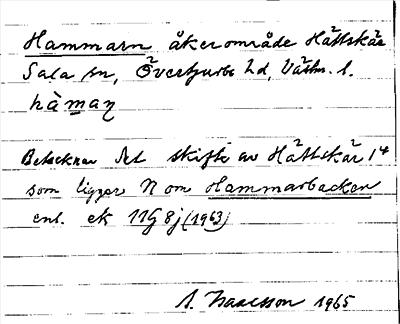 Hammarn åkerområde Hättskär
Sala sn, Övertjurbo hd, Västm. l.
hàmaṇ
Betecknar det skifte av Hättskär 1⁴
som ligger N om Hammarbacken
enl. ek 11G 8j (1963)
S. Isaacsson 1965